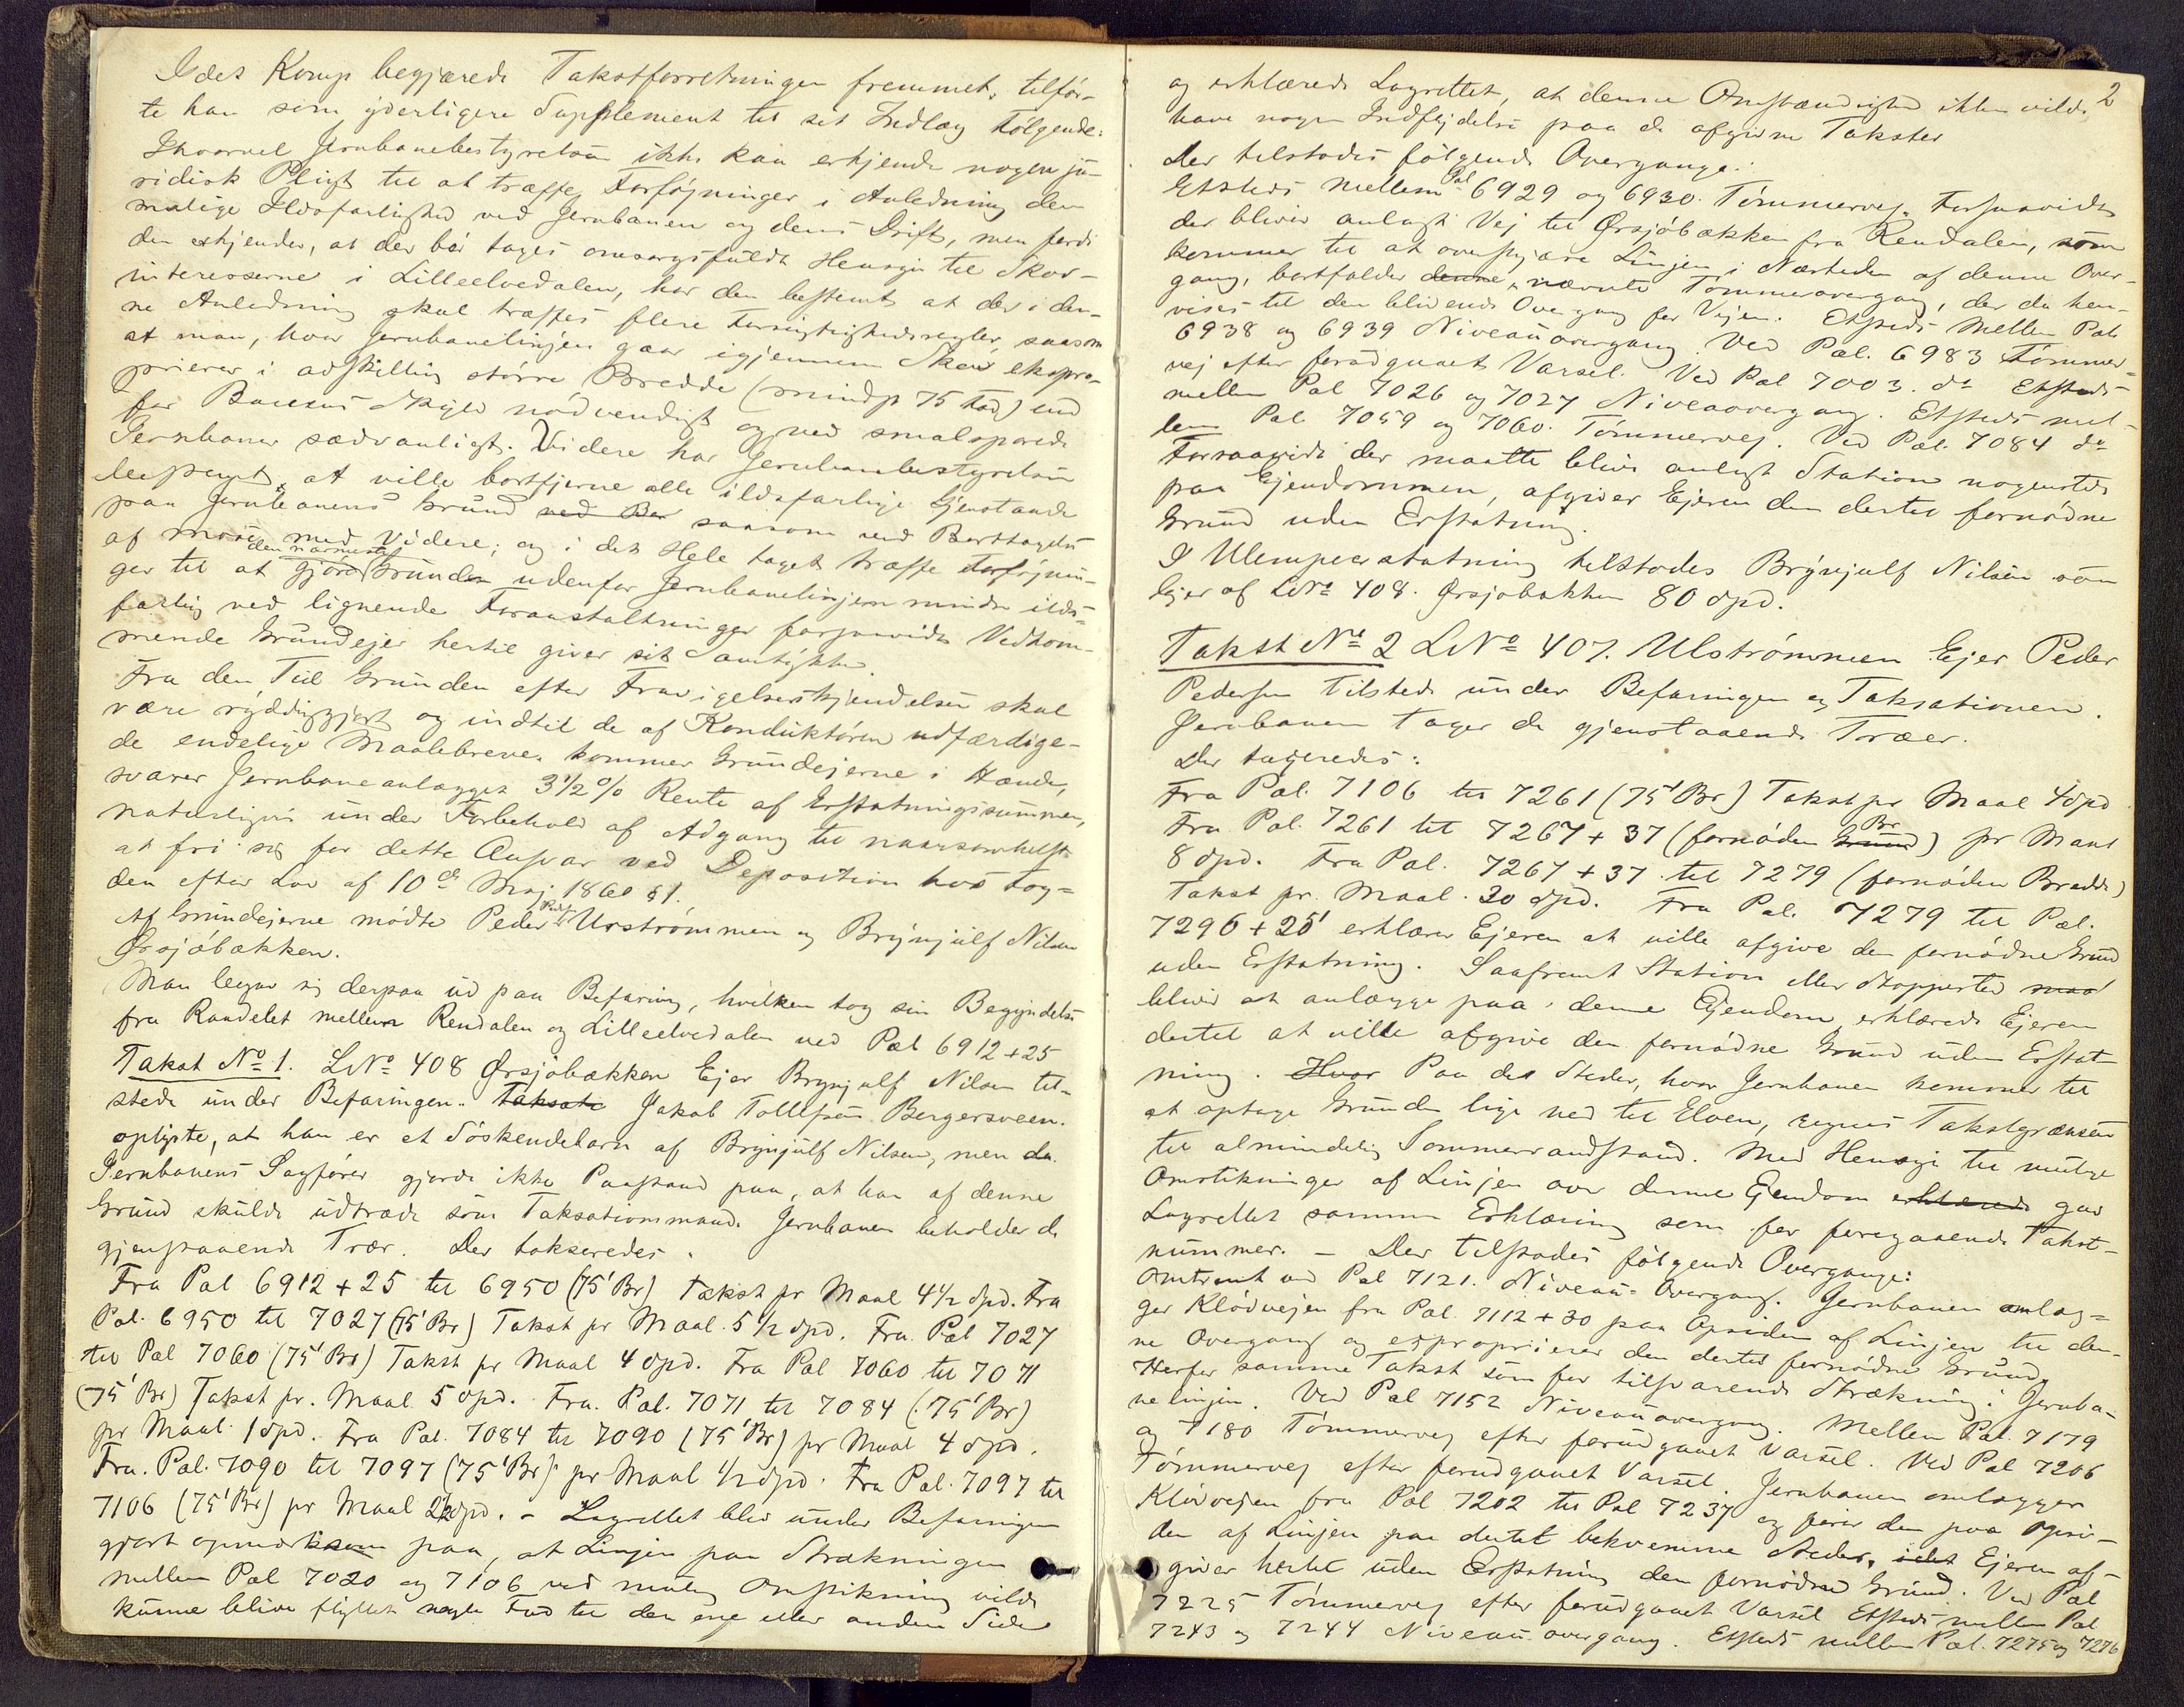 Idet Komp begjærede Takstforretningen fremmet, tilfør-
te han som yderligere Supplement til sit Indlæg følgende:
Ihvorvel Jernbanebestyrelsen ikke kan erkjende nogen ju-
ridisk Pligt til at træffe Forføjninger i Anledning den
mulige Ildsfarlighed ved Jernbanen og dens Drift, men fordi
den erkjender, at der bør tages omsorgsfuldt Hensyn til Skov-
interesserne i Lilleelvedalen, har den bestemt at der i den-
ne Anledning skal træffes flere Forsigtighedsregler, saasom
at man, hvor Jernbanelinjen gaar igjennem Skov ekspro-
prierer i adskillig større Bredde (mindst 75 Fod) end
for Banens Skyld nødvendigt og ved smalsporede
Jernbaner sædvanligt. Videre har Jernbanebestyrelsen
bestemt, at ville bortfjerne alle ildsfarlige Gjenstande
paa Jernbanens Grund ved Bor saasom ved Borttagelse
af Mose med Videre; og i det Hele taget træffe Forføjnin-
ger til at gjøre den nærmeste Grunden udenfor Jernbanelinjen mindre ilds-
farlig ved lignende Foranstaltninger forsaavidt Vedkom-
mende Grundejer hertil giver sit Samtykke.
Fra den Tid Grunden efter Fravigelseskjendelsen skal
være ryddiggjort og indtil de af Konduktøren udfærdige-
de endelige Maalebreve kommer Grundejerne i Hænde,
svarer Jernbaneanlægget 3 1/2 % Rente af Erstatningssummen,
naturligvis under Forbehold af Adgang til naarsomhelst
at fri sig for dette Ansvar ved Deposition hos Fog-
den efter Lov af 10de Maj 1860 § 1.
Af Grundejerne mødte Peder Peds. Urstrømmen og Brynjulf Nilsen
Ørsjøbækken.
Man begav sig derpaa ud paa Befaring, hvilken tog sin Begyndelse
fra Raadelet mellem Rendalen og Lilleelvedalen ved Pæl 6912+25
Takst No 1. LNo 408 Ørsjøbækken Ejer Brynjulf Nilsen til-
stede under Befaringen. Taksate Jakob Tollefsen Bergersveen
oplyste, at han er et Søskendebarn af Brynjulf Nilsen, men da
Jernbanens Sagfører gjorde ikke Paastand paa, at han af denne
Grund skulde udtræde som Taksationsmand. Jernbanen beholder de
gjenstaaende Trær. Der takseredes:
Fra Pæl 6912+25 til 6950 (75' Br) Takst pr Maal 4 1/2 Spd. Fra
Pæl. 6950 til 7027 (75' Br) Takst pr Maal. 5 1/2 Spd. Fra Pæl 7027
til Pæl 7060 (75' Br) Takst pr Maal 4 Spd. Fra Pæl 7060 til 7071
(75' Br) Takst pr. Maal 5 Spd. Fra. Pæl. 7071 til 7084 (75' Br)
pr Maal 1 Spd. Fra Pæl. 7084 til 7090 (75' Br) pr Maal 4 Spd.
Fra. Pæl. 7090 til 7097 (75' Br) pr Maal 1/2 Spd. Fra Pæl. 7097 til
7106 (75' Br) pr Maal 2 1/2 Spd. - Lagrettet blev under Befaringen
gjort opmærksom paa, at Linjen paa Strækningen
mellem Pæl 7020 og 7106 ved mulig Omstikning vilde
kunne blive flyttet nogle Fod til den ene eller anden Side
2
og erklærede Lagrettet, at denne Omstændighed ikke vilde
have nogen Indflydelse paa de afgivne Takster
Der tilstodes følgende Overgange:
Etsteds mellem Pæl 6929 og 6930. Tømmervej. Forsaavidt
der bliver anlagt Vej til Ørsjøbækken fra Rendalen, som
kommer til at overskjære Linjen i Nærheden af denne Over-
gang, bortfalder denne, nævnte Tømmerovergang, der da hen-
vises til den blivende Overgang for Vejen. Etsteds mellem Pæl
6938 og 6939 Niveauovergang. Ved Pæl. 6983 Tømmer-
vej efter forudgaaet Varsel. Ved Pæl 7003. do Etsteds
mellem Pæl 7026 og 7027 Niveaovergang. Etsteds mel-
lem Pæl 7059 og 7060. Tømmervej. Ved Pæl. 7084 do
Forsaavidt der maatte blive anlagt Station nogensteds
paa Ejendommen, afgiver Ejeren den dertil fornødne
Grund uden Erstatning.
I Ulempeerstatning tilstodes Brynjulf Nilsen som
Ejer af LNo 408. Ørsjøbækken 80 Spd.
Takst No 2 LNo 407. Ulstrømmen Ejer Peder
Pedersen tilstede under Befaringen og Taksationen.
Jernbanen tager de gjenstaaende Træer.
Der taxeredes:
Fra Pæl. 7106 til 7261 (75' Br) Takst pr Maal 4 Spd
Fra Pæl. 7261 til 7267+37 (fornøden Grund Br) pr Maal
8 Spd. Fra Pæl. 7267+37 til 7279 (fornøden Bredde)
Takst pr. Maal. 30 Spd. Fra Pæl. 7279 til Pæl.
7296+25' erklærer Ejeren at ville afgive den fornødne Grund
uden Erstatning. Saafremt Station eller Stoppested maa
blive at anlægge paa denne Ejendom erklærede Ejeren
dertil at ville afgive den fornødne Grund uden Erstat-
ning. Hvor Paa de Steder, hvor Jernbanen kommer til
at optage Grunden lige ned til Elven, regnes Takstgrænsen
til almindelig Sommervandstand. Med Hensyn til mulige
Omstikninger af Linjen over denne Ejendom erklærede gav
Lagrettet samme Erklæring som for foregaaende Takst-
nummer. - Der tilstodes følgende Overgange:
Omtrent ved Pæl 7121. Niveau-Overgang. Jernbanen omlæg-
ger Kløvvejen fra Pæl. 7112+30 paa Opsiden af Linjen til den-
ne Overgang og exproprierer den dertil fornødne Grund
Herfor samme Takst som for tilsvarende Strækning i Jernba-
nelinjen. Ved Pæl 7152 Niveauovergang. Mellem Pæl. 7179
og 7180 Tømmervej efter forudgaaet Varsel. Ved Pæl 7206
Tømmervej efter forudgaaet Varsel. Jernbanen omlægger
Kløvvejen fra Pæl 7202 til Pæl 7237 og fører den paa Opsi-
den af Linjen paa dertil bekvemme Steder, idet Ejeren af-
giver hertil uden Erstatning den fornødne Grund. Ved Pæl
7225 Tømmervej efter forudgaaet Varsel Etsteds mellem Pæl
7243 og 7244 Niveauovergang. Etsteds mellem Pæl. 7275 og 7276